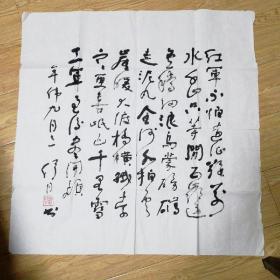 红军不怕远征难万
水千山只等闲五岭逶
迤腾细浪乌蒙磅礴
走泥丸金沙水拍云
崖暖大渡桥横铁索
寒更喜岷山千里雪
三军过后尽开颜